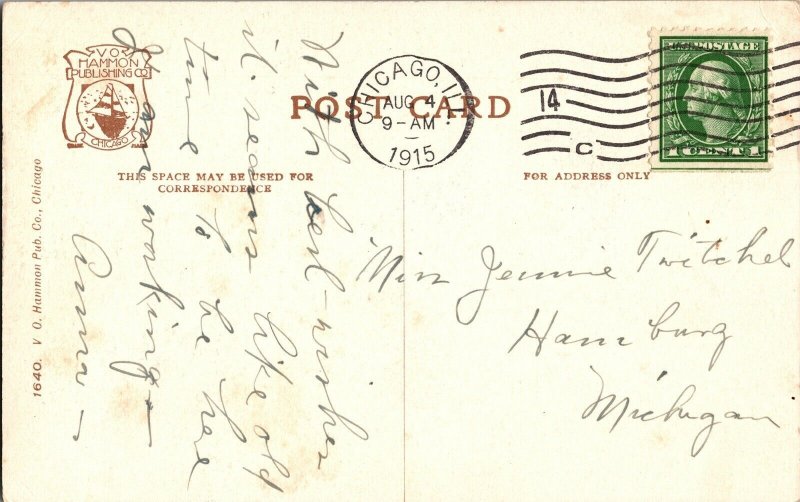 V O
HAMMON
PUBLISHING CO
CHICAGO
POST CARD
CHICAGO, ILL.
AUG 4
9-AM
1915
14
C
U.S. POSTAGE
1 CENT 1
THIS SPACE MAY BE USED FOR
CORRESPONDENCE
FOR ADDRESS ONLY
1640. V O. Hammon Pub. Co., Chicago
With best-wishes
it seems like old
time to be here
I am working—
Anna—
Miss Jennie Twitchel
Hamburg
Michigan